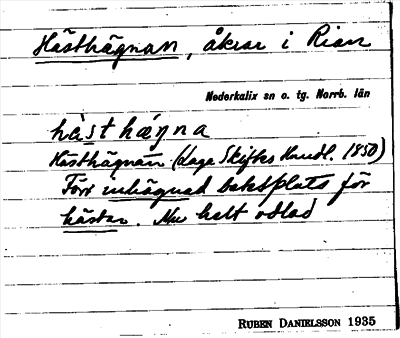 Hästhägnan, åkrar i Rian
Nederkalix sn o. tg. Norrb. län
hästhägna
Hästhägnan (Laga Skiftes Handl. 1850)
Förr inhägnad betesplats för
hästar. Nu helt odlad
RUBEN DANIELSSON 1935